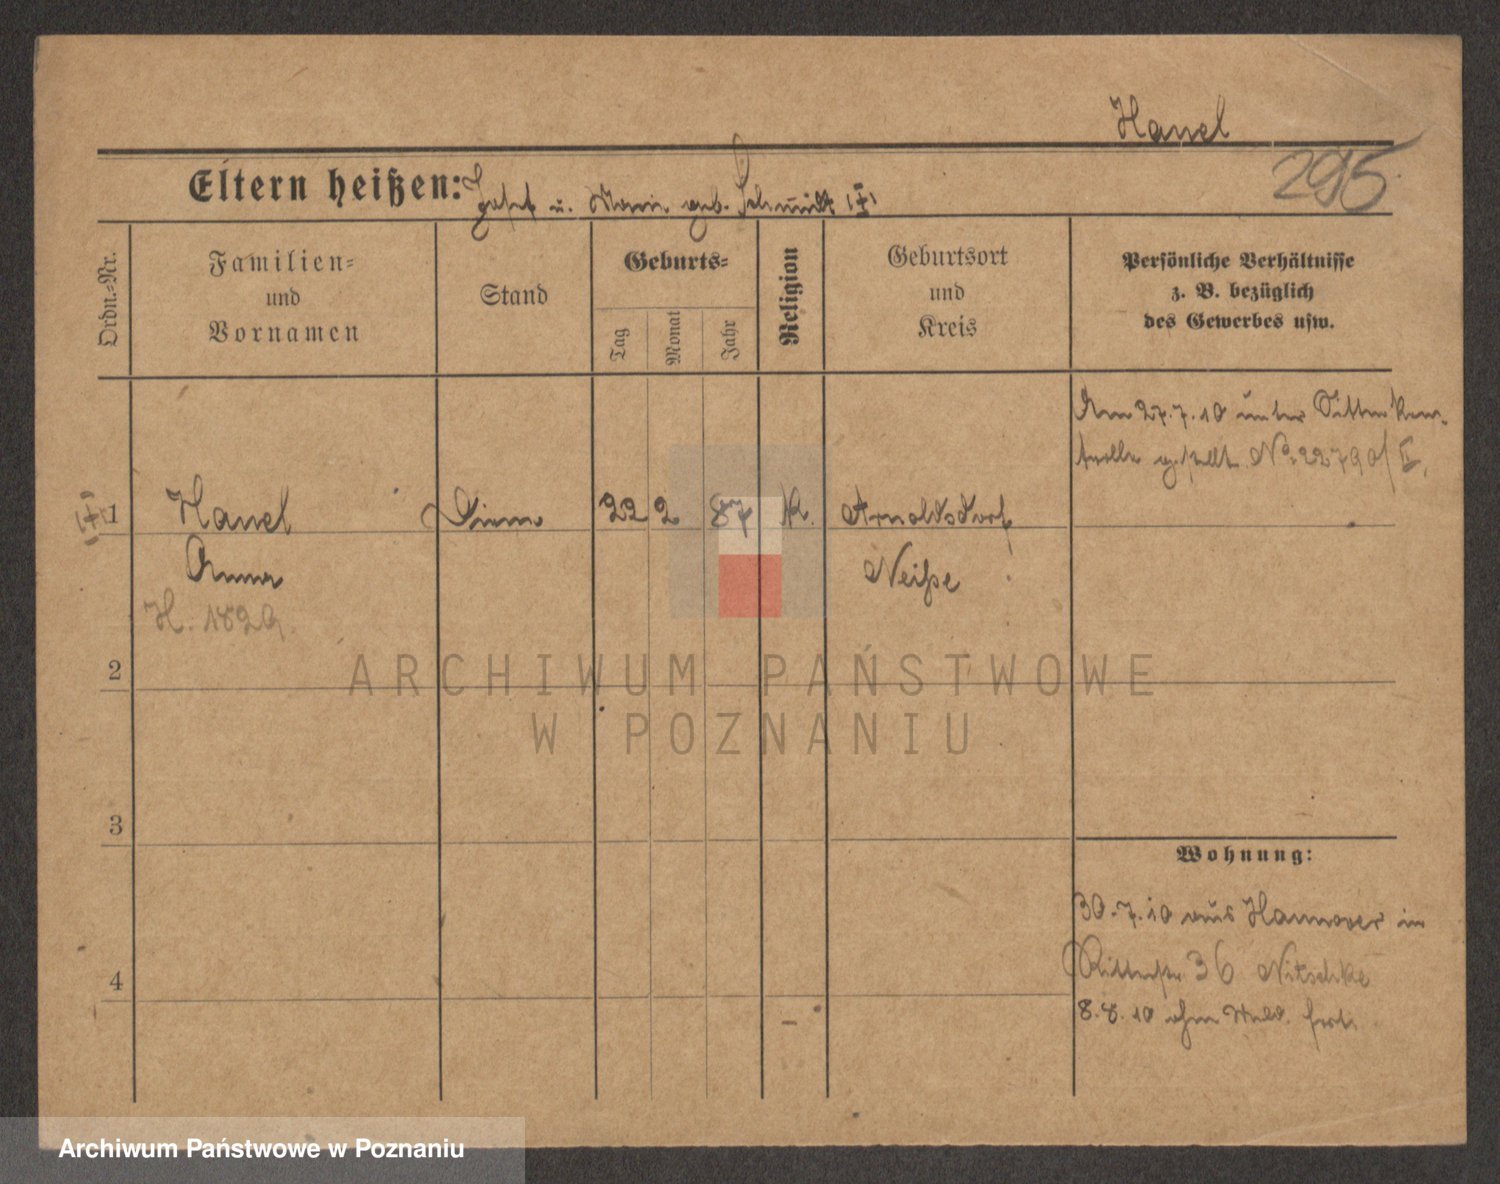 Hanel
295
Eltern heißen: Josef u. Marie geb. Schmidt
Ordn.=Nr.
Familien=
und
Vornamen
Stand
Geburts=
Tag
Monat
Jahr
Religion
Geburtsort
und
Kreis
Persönliche Verhältnisse
z. B. bezüglich
des Gewerbes usw.
Am 27.7.10 unter Sitten Kon-
trolle gestellt. No 22790/II.
1
Hanel
22 2 87 K.
Arnoldsdorf
Anna
Neiße
H. 1829
2
3
4
Wohnung:
30.7.10 aus Hannover in
Ritterstr 36 Nitschke
8.8.10 ohne Meld. fort.
ARCHIWUM PAŃSTWOWE
W POZNANIU
Archiwum Państwowe w Poznaniu